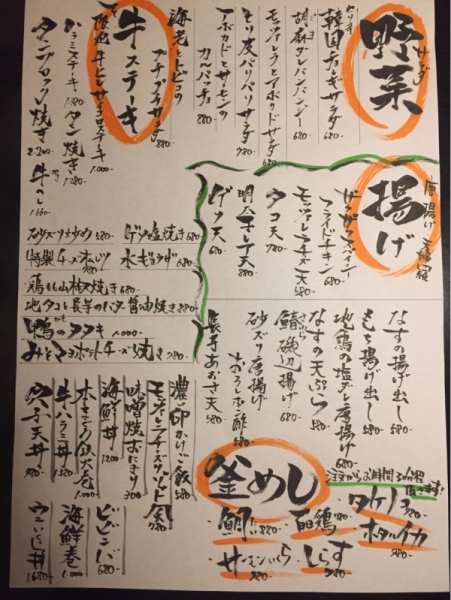 野菜
サラダ
韓国チョレギサラダ 680-
胡麻ダレバンバンジー 680-
モッツァレラとアボカドサラダ 780-
とり皮パリパリサラダ 680-
アボカドとサーモンの
カルパッチョ 880-
海老とトビコの
プチプチサラダ 880-
牛ステーキ
牛ヒレサイコロステーキ 1.000-
ハラミステーキ 1.380
タン焼き 1.280-
タンブロック焼き 2.200-
揚げ
唐揚げ 天婦羅
フライドチキン
モッツァレラチーズ天 680-
タコ天 780-
明太子レンコン天 880-
ゲソ天 680-
なすの揚げ出し 580-
もち揚げ出し 580-
地鶏の塩ダレ唐揚げ 680-
なすの天ぷら 580-
鯖磯辺揚げ 680-
砂ズリ唐揚げ
おろしポン酢 580-
長芋あおさ天 580-
砂ズリ炒め 580-
ゲソ塩焼き 680-
特製チヂミ
水ギョウザ 680-
鶏もも山椒焼き 680-
地タコと長芋のバター醤油焼き 880-
鴨のタタキ 1.000-
釜めし
注文からお時間30分程頂きます!
鯛 880-
百鶏 780-
タケノコ 980-
ホタルイカ 980-
サーモンいくら 980-
しらす 980-
濃い卵かけご飯 580-
モッツァレラチーズリゾット風 780-
味噌焼おにぎり 300
海鮮丼 1200
本まぐろ鉄火巻 1.000-
牛ハラミ丼 1380
穴子天丼 980-
ビビンバ 680-
海鮮巻 1.000-
ウニいくら丼 1680-